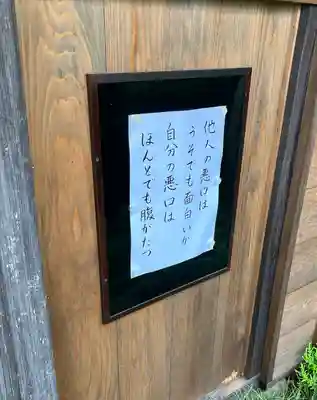 他人の悪口は
うそでも面白いが
自分の悪口は
ほんとでも腹がたつ